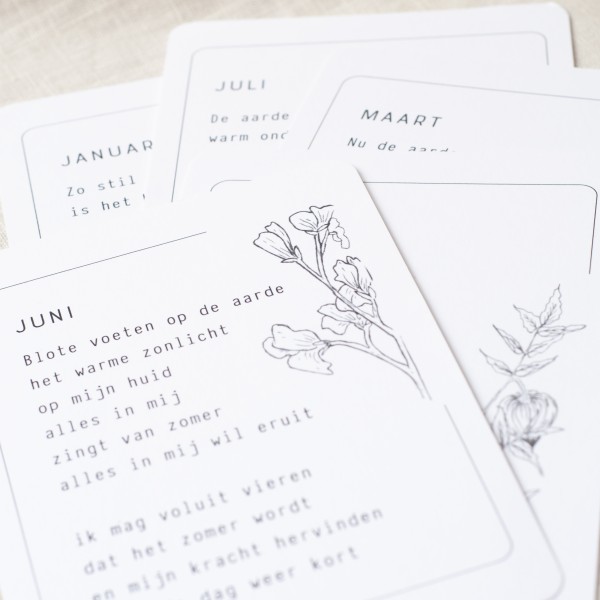 JULI
De aarde
warm
MAART
Nu de
JANUAR
Zo stil
is het
JUNI
Blote voeten op de aarde
het warme zonlicht
op mijn huid
alles in mij
zingt van zomer
alles in mij wil eruit
ik mag voluit vieren
dat het zomer wordt
en mijn kracht hervinden
dag weer kort